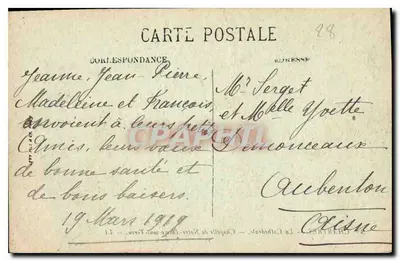 88
CARTE POSTALE
CORRESPONDANCE
ADRESSE
Jeanne, Jean-Pierre,
Madeleine et François
envoient à leurs petits
Amis, leurs vœux
de bonne santé et
de bons baisers.
19 Mars 1919
Mr Serget
et Melle Yvette
Simonceaux
Aubenton
Aisne
La Cathédrale. - Chapelle de Notre-Dame-sous-Terre. - LL